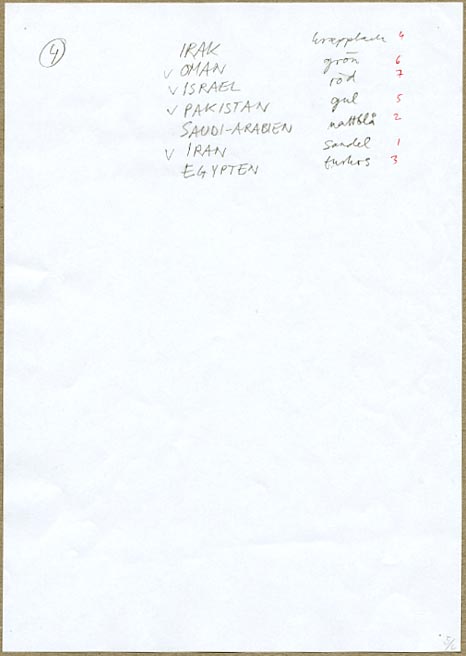 4
IRAK krapplack 4
✓ OMAN grön 6
✓ ISRAEL röd 7
✓ PAKISTAN gul 5
SAUDI-ARABIEN nattblå 2
✓ IRAN sandel 1
EGYPTEN turkos 3